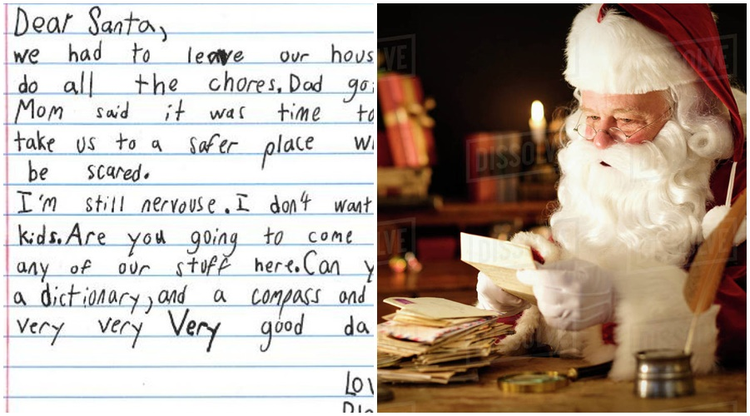 Dear Santa,
we had to leave our hous
do all the chores. Dad go
Mom said it was time to
take us to a safer place w
be scared.
I'm still nervouse. I don't want
kids. Are you going to come
any of our stuff here. Can y
a dictionary, and a compass and
very very Very good da
Lov
DISSOLVE